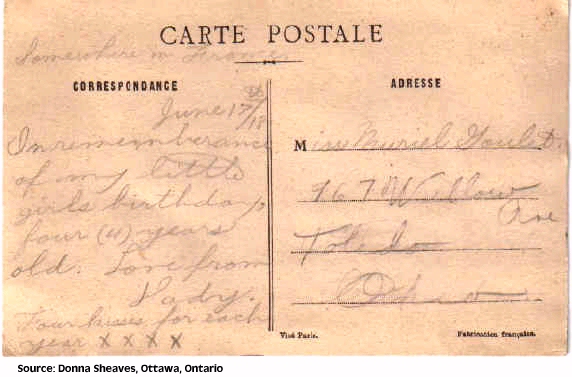 CARTE POSTALE
Somewhere in France
CORRESPONDANCE
June 17/18
In rememberance
of my little
girls birthday
four (4) years
old. Love from
Dady.
Four kisses for each
year X X X X
ADRESSE
Miss Muriel Goulet
967 Willow
Ave
Toledo
Ohio
Visé Paris.
Fabrication française.
Source: Donna Sheaves, Ottawa, Ontario